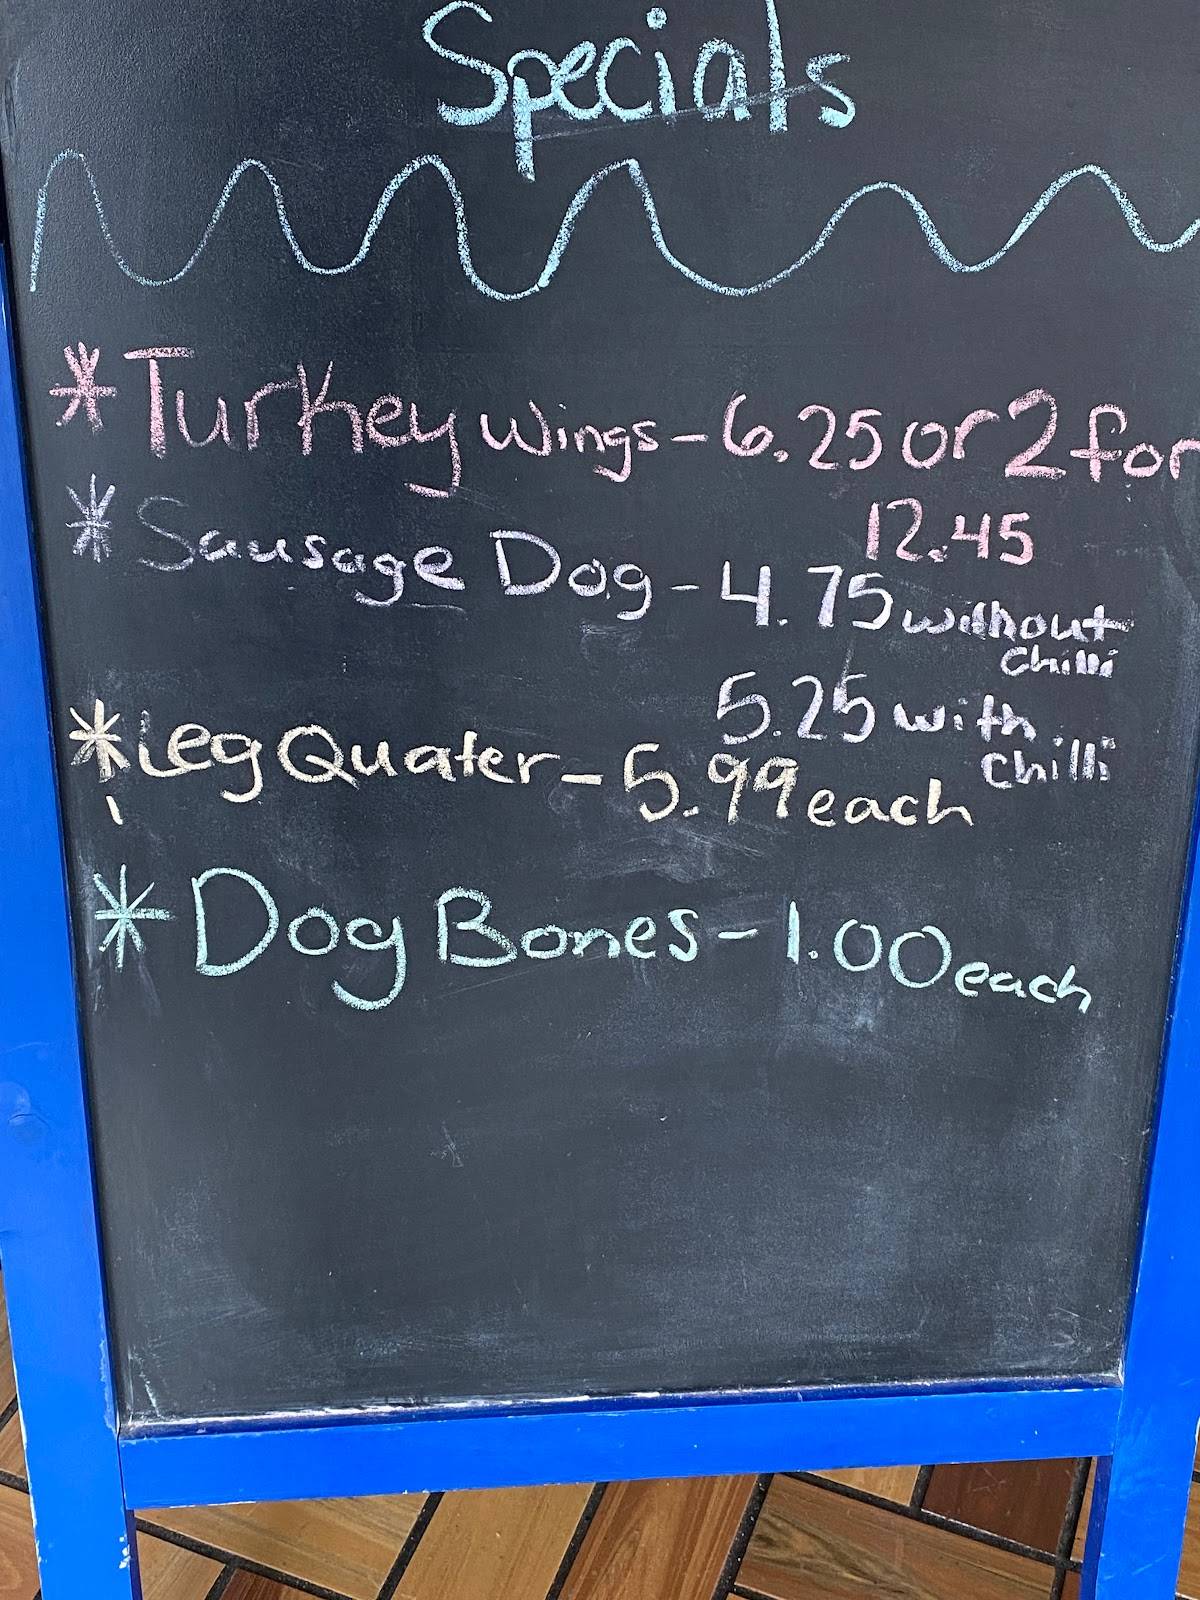 Specials
* Turkey wings - 6.25 or 2 for
12.45
* Sausage Dog - 4.75 without
chilli
5.25 with
chilli
* Leg Quater - 5.99 each
* Dog Bones - 1.00 each